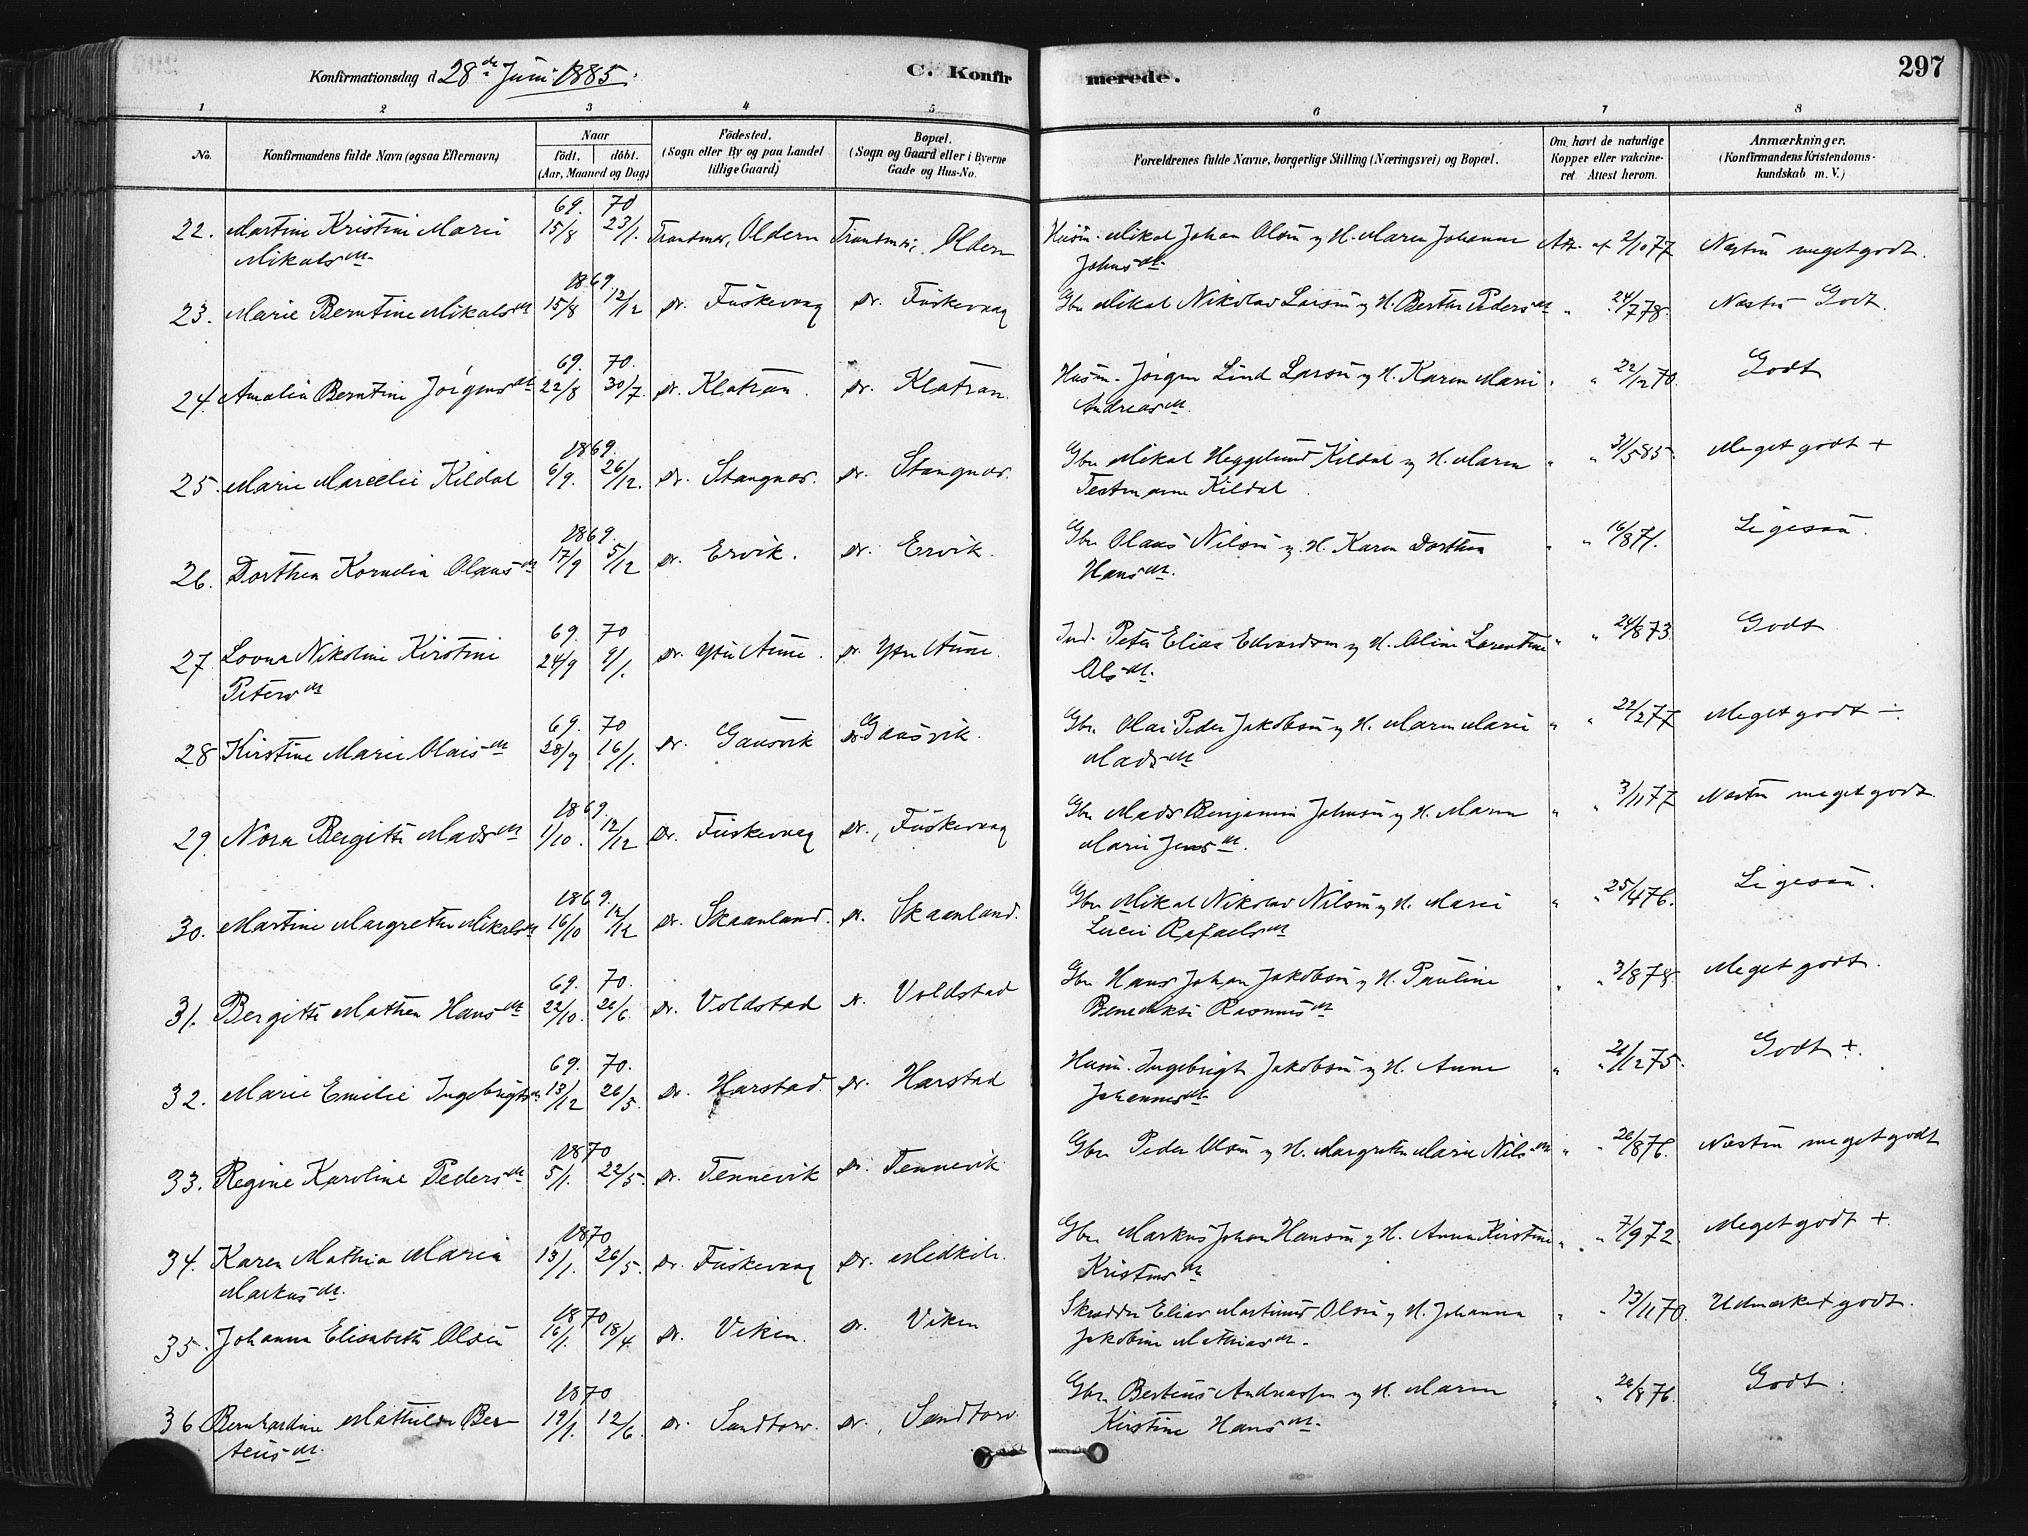 Konfirmationsdag d 28de Juni 1885.
C. Konfirmerede.
297
1 2 3 4 5 6 7 8
No.
Konfirmandens fulde Navn (ogsaa Efternavn)
Naar
født. døbt.
(Aar, Maaned og Dag)
Fødested.
(Sogn eller By og paa Landet
tillige Gaard)
Bopæl.
(Sogn og Gaard eller i Byerne
Gade og Hus-No.
Forældrenes fulde Navne, borgerlige Stilling (Næringsvei) og Bopæl.
Om havt de naturlige
Kopper eller vakcine-
ret. Attest herom.
Anmærkninger.
(Konfirmandens Kristendoms-
kundskab m. V.)
69. 70
22. Martine Kristine Marie 15/8 23/1. Trondenes, Oldern Oldern Mikal Johan Olsen og H. Maren Johanne Att. af 2/10 77 Næsten meget godt.
Mikalsdt. Johnsdt.
1869.
23. Marie Berntine Mikalsdt 15/8 12/12 Do. Fuskevaag Do. Fuskevaag Gbr. Mikal Nikolai Larsen og H. Berthe Pedersdt " 24/7 78. Næsten Godt.
69. 70.
24. Amalia Berntine Jørgensdt 22/8 30/7. Do. Klatran. Do. Klatran. Husm. Jørgen Lind Larsen og H. Karen Marie " " 22/12 70. Godt
Andreasdt.
1869.
25. Marie Marcelie Kildal 6/9. 26/12. Do. Stangnes. Do. Stangnes. Gbr. Mikal Heggelund Kildal og H. Maren " " 31/5 85. Meget godt +
Kildal.
1869.
26. Dorthea Kornelia Olausdt 17/9 5/12 Do. Ervik. Do. Ervik. Gbr. Olaus Nilsen og H. Karen Dorthea " " 16/8 71. Ligesaa.
Hansdt.
69. 70
27. Lovna Nikoline Kirstine 24/9 9/1. Do. Ytre Aune. Do. Ytre Aune. Ind. Peter Elias Edvardsen og H. Oline Lorentine " " 24/8 73. Godt
Petersdt Olsdt.
69. 70
28 Kirstine Marie Olaisdt 28/9 16/1. Do. Gausvik Do. Gausvik. Gbr. Olai Peder Jakobsen og H. Maren Marie " " 22/2 77 Meget godt ÷.
Madsdt
1869.
29. Nora Bergitte Madsdt 1/10. 12/12 Do. Fuskevaag Do., Fuskevaag Gbr. Mads Benjamin Johnsen og H. Maren " " 3/11 77 Næsten meget godt.
Marie Jensdt.
1869.
30. Martine Margrethe Mikalsdt 16/10 12/12 Do. Skaanland. Do. Skaanland. Gbr. Mikal Nikolai Nilsen og H. Marie " " 25/4 76. Ligesaa.
Lucie Rafaelsdt
69. 70.
31. Bergitte Mathea Hansdt 22/10. 26/6. Do. Voldstad Do. Voldstad Gbr. Hans Johan Jakobsen og H. Pauline " " 3/8 78. Meget godt.
Benedikte Rasmusdt
69. 70.
32. Marie Emilie Ingebrigtsdt 13/12 26/5. Do. Harstad. Do. Harstad Husm. Ingebrigt Jakobsen og H. Anne " " 21/12 75. Godt +.
Johannesdt
1870
33. Regine Karoline Pedersdt 5/1. 22/5. Do. Tennevik Do. Tennevik Gbr. Peder Olsen og H. Margrethe Marie Nilsdt " " 26/8 76. Næsten meget godt
1870
34. Karen Mathia Maria 13/1. 26/5. Do. Fuskevaag Do. Gbr. Markus Johan Hansen og H. Anna Kirstine " " 7/9 72. Meget godt +.
Markusdt. Kristensdt
1870
35. Johanna Elisabeth Olsen 16/1. 18/4. Do. Viken. Do. Viken Skrædder Elias Martinus Olsen og H. Johanna " " 13/11 70. Udmærket godt.
Jakobine Mathiasdt.
1870
36 Bernhardine Mathilde Ber- 19/1. 12/6. Do. Sandtorv. Do. Sandtorv. Gbr. Berteus Andreassen og H. Maren " " 26/8 76. Godt.
teusdt. Kirstine Hansdt.